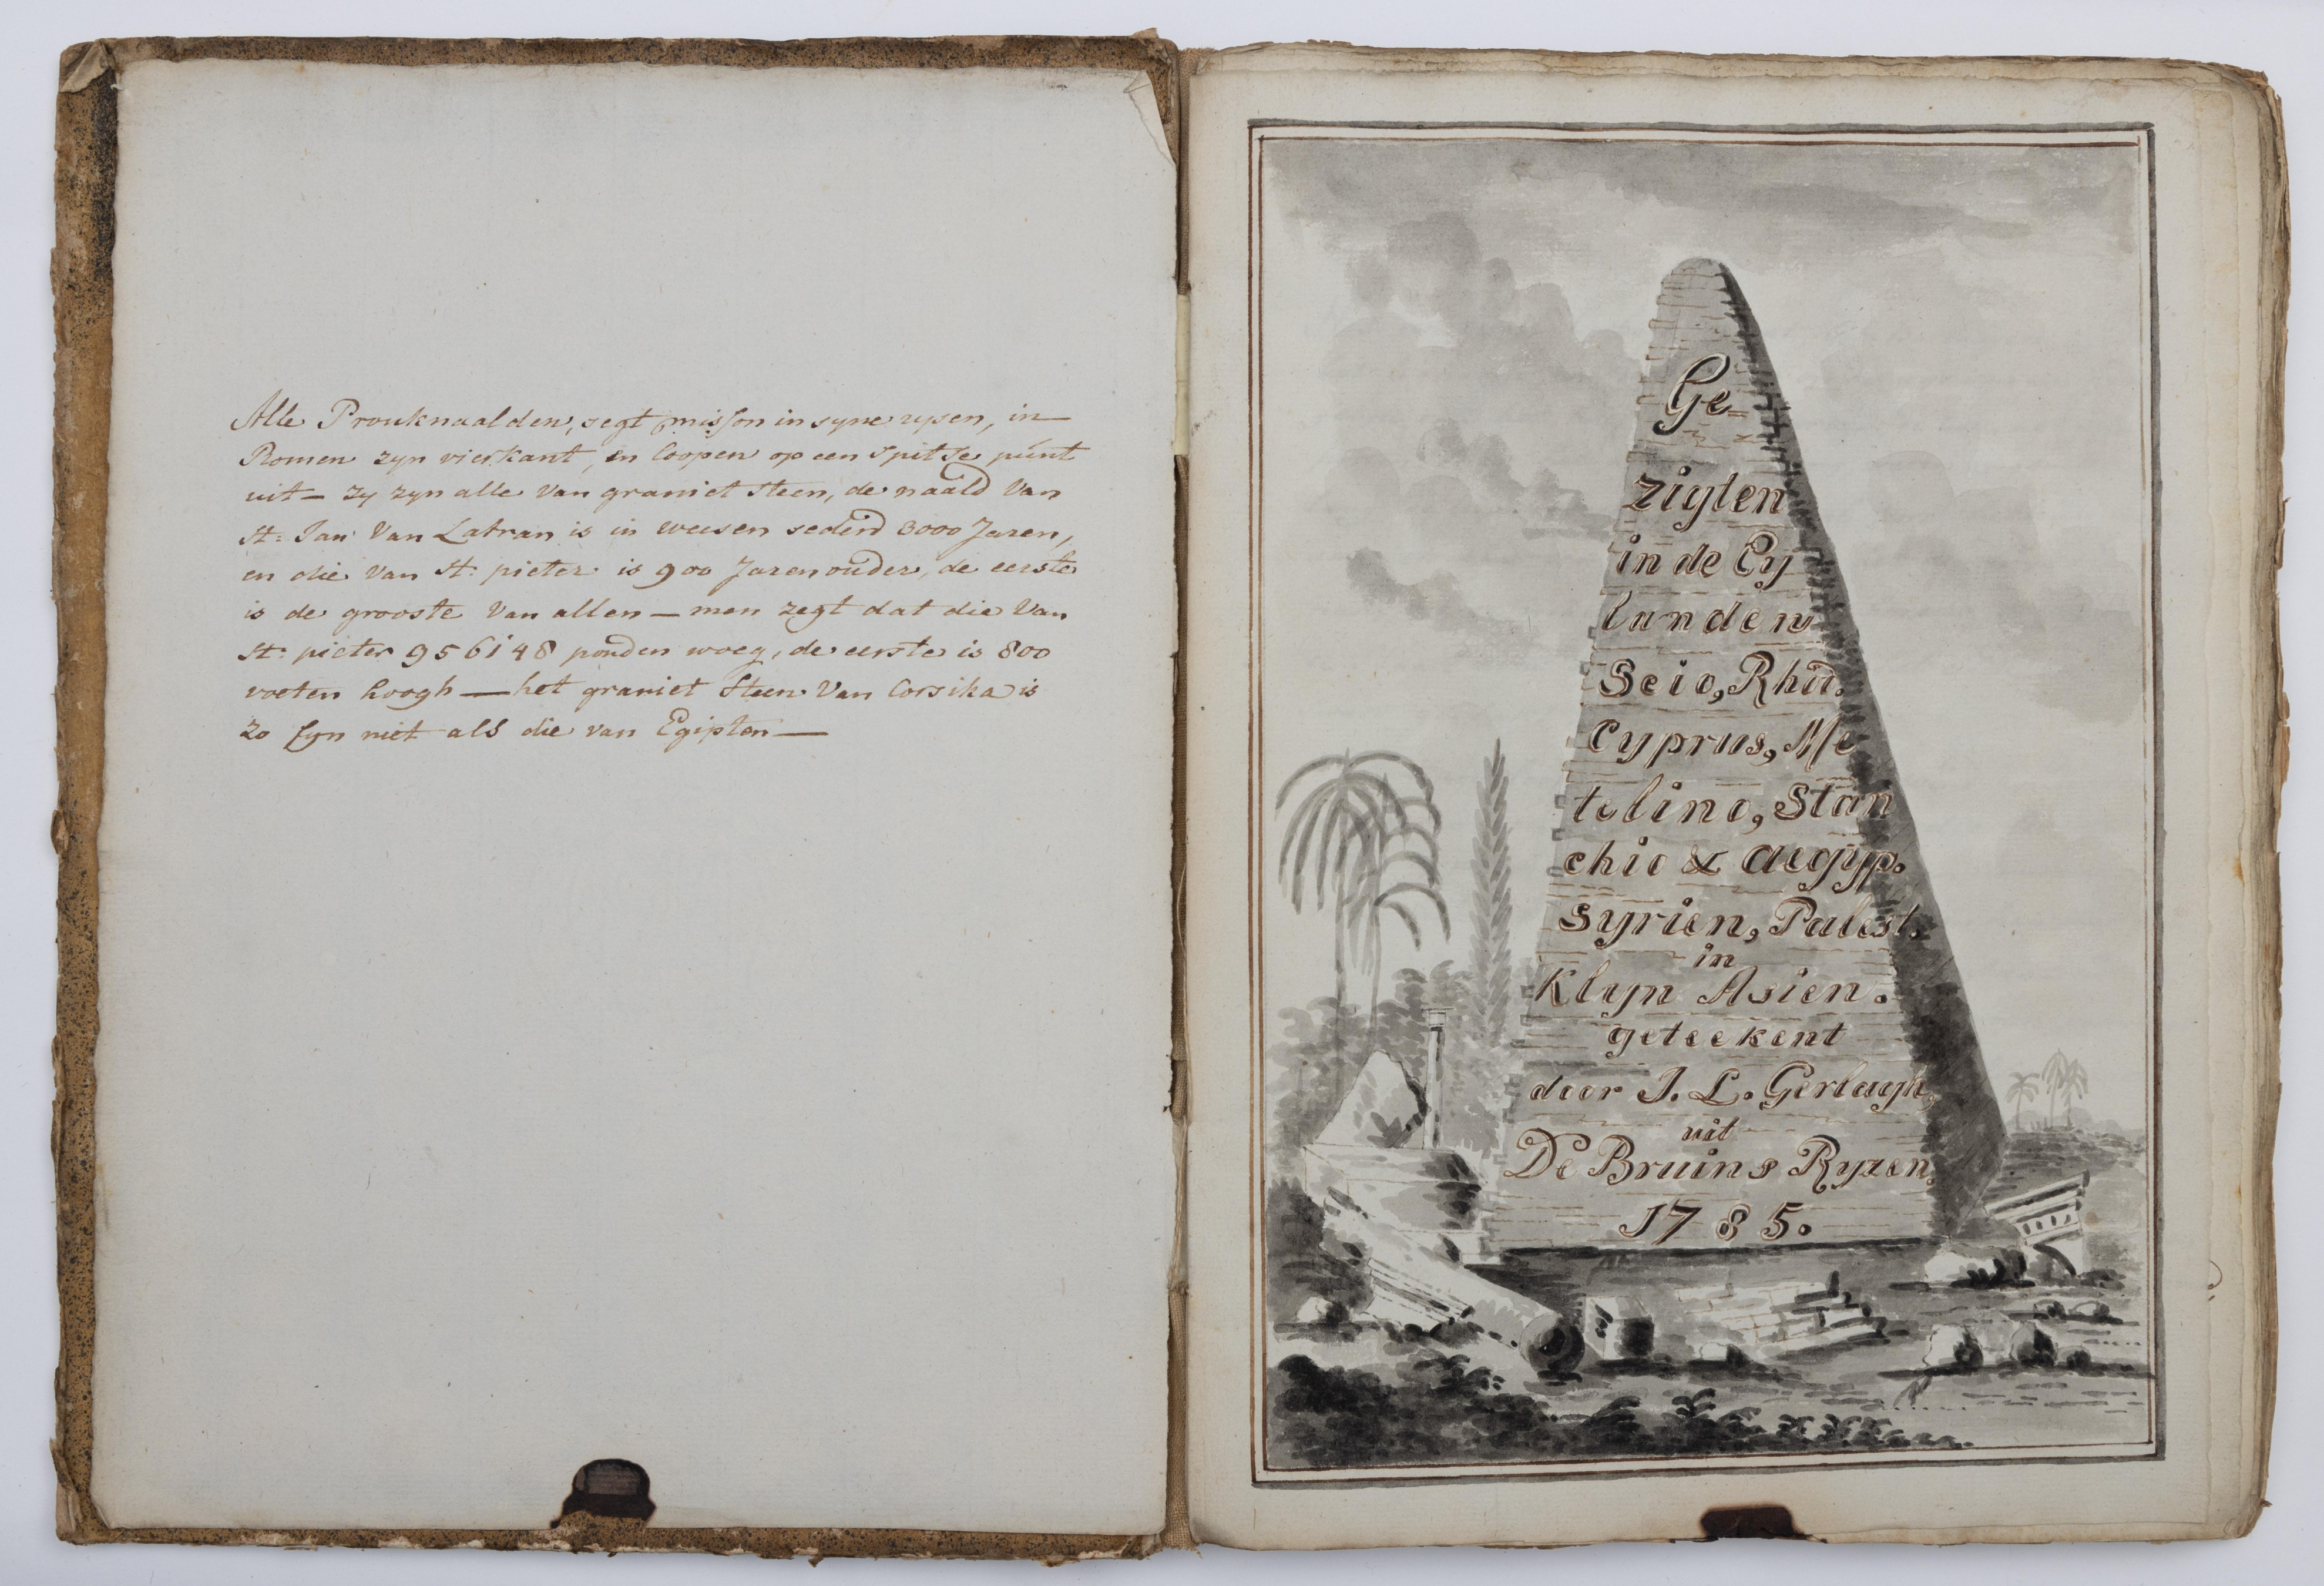 Alle Pronknaalden, segt misson in syne rysen, in
Romen zyn vierkant, en loopen op een spitse punt
uit — zy zyn alle van graniet steen, de naald van
st: Jan van Latran is in weesen sederd 3000 Jaren,
en die van st: pieter is 900 Jaren ouder, de eerste
is de grooste van allen — men zegt dat die van
st: pieter 956148 ponden woeg, de eerste is 800
voeten hoogh — het graniet steen van Corsika is
zo fyn niet als die van Egipten —
Ge=
zigten
in de Ey
landen
Scio, Rhod.
Cyprus, Me
telino, Stan
chio & Aegyp.
Syrien, Palest.
in
Klyn Asien.
geteekent
door J. L. Gerlagh,
uit
De Bruins Ryzen.
1785.